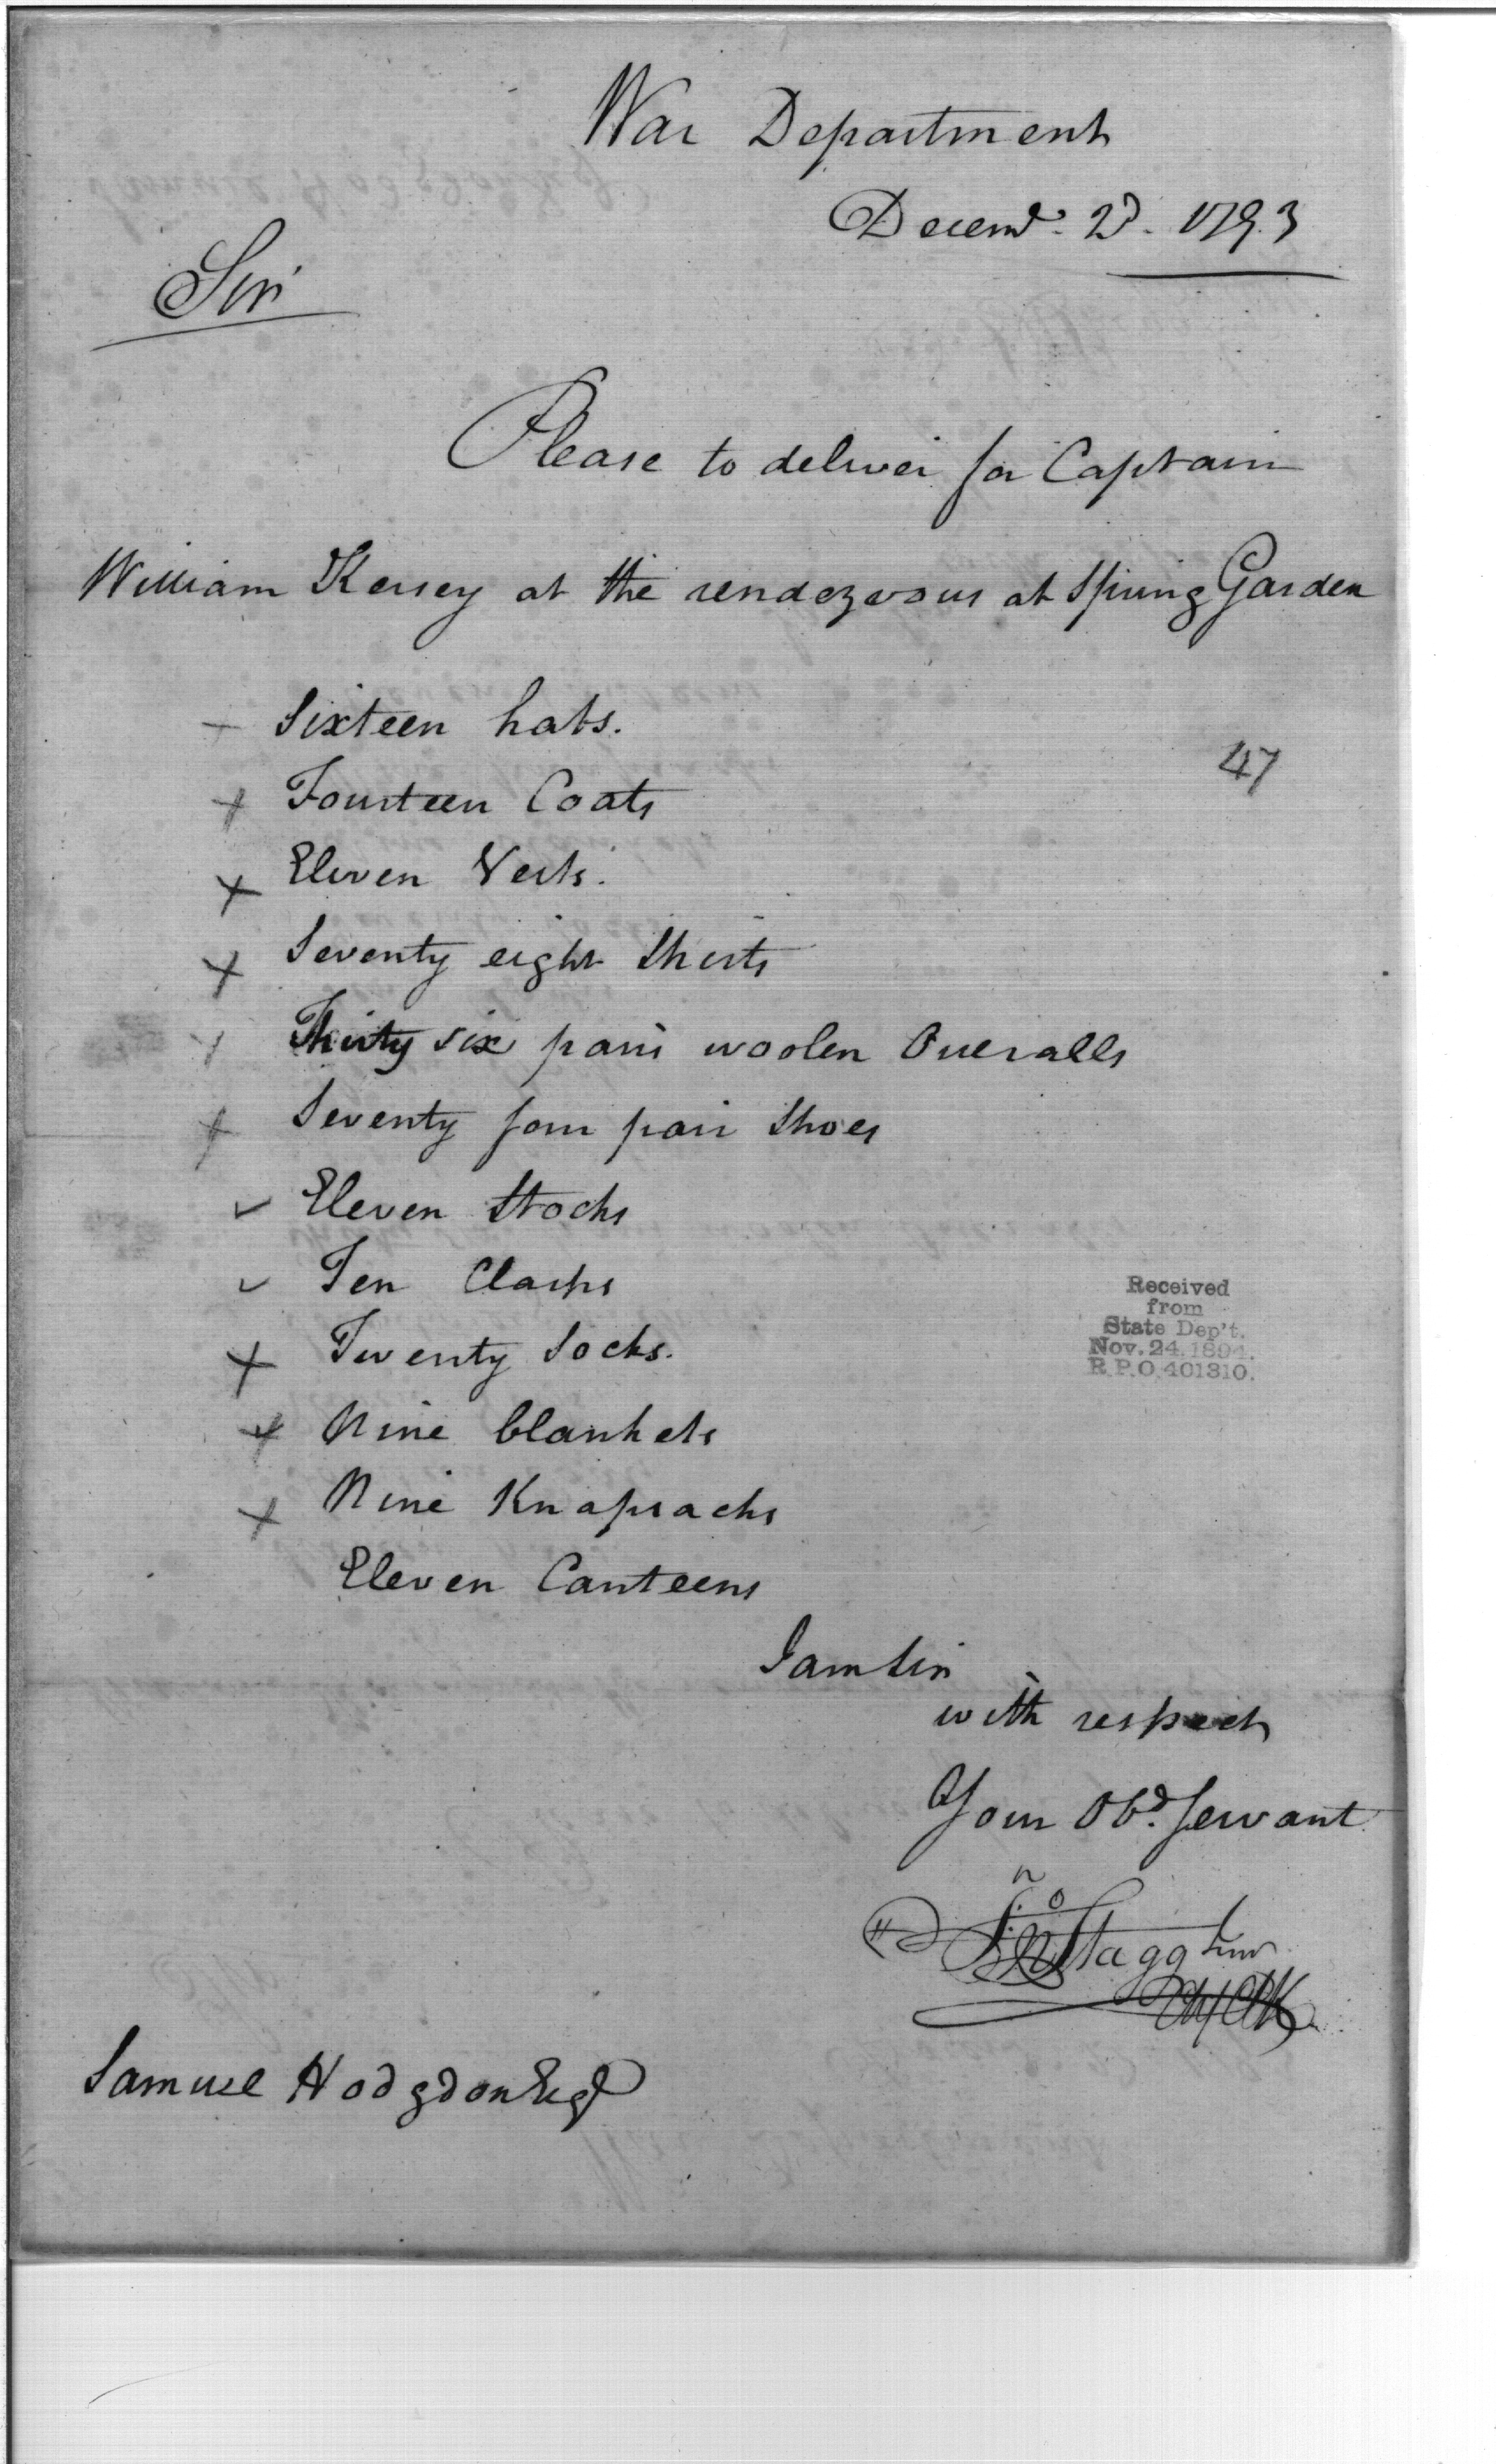 War Department
Decemr. 2d. 1793
Sir
Please to deliver for Captain
William Kersey at the rendezvous at Spring Garden
Sixteen hats.
47
Fourteen Coats
Eleven Vests.
Seventy eight Shirts
Thirty six pairs woolen Overalls
Seventy four pair Shoes
Eleven Stocks
Ten Clasps
Received
from
State Dep't.
Nov. 24. 1894.
R.P.O. 401310.
Twenty Socks.
Nine blankets
Nine Knapsacks
Eleven Canteens
I am Sir
with respect
Your Obd. Servant
Jno Stagg Junr
Samuel Hodgdon Esqr